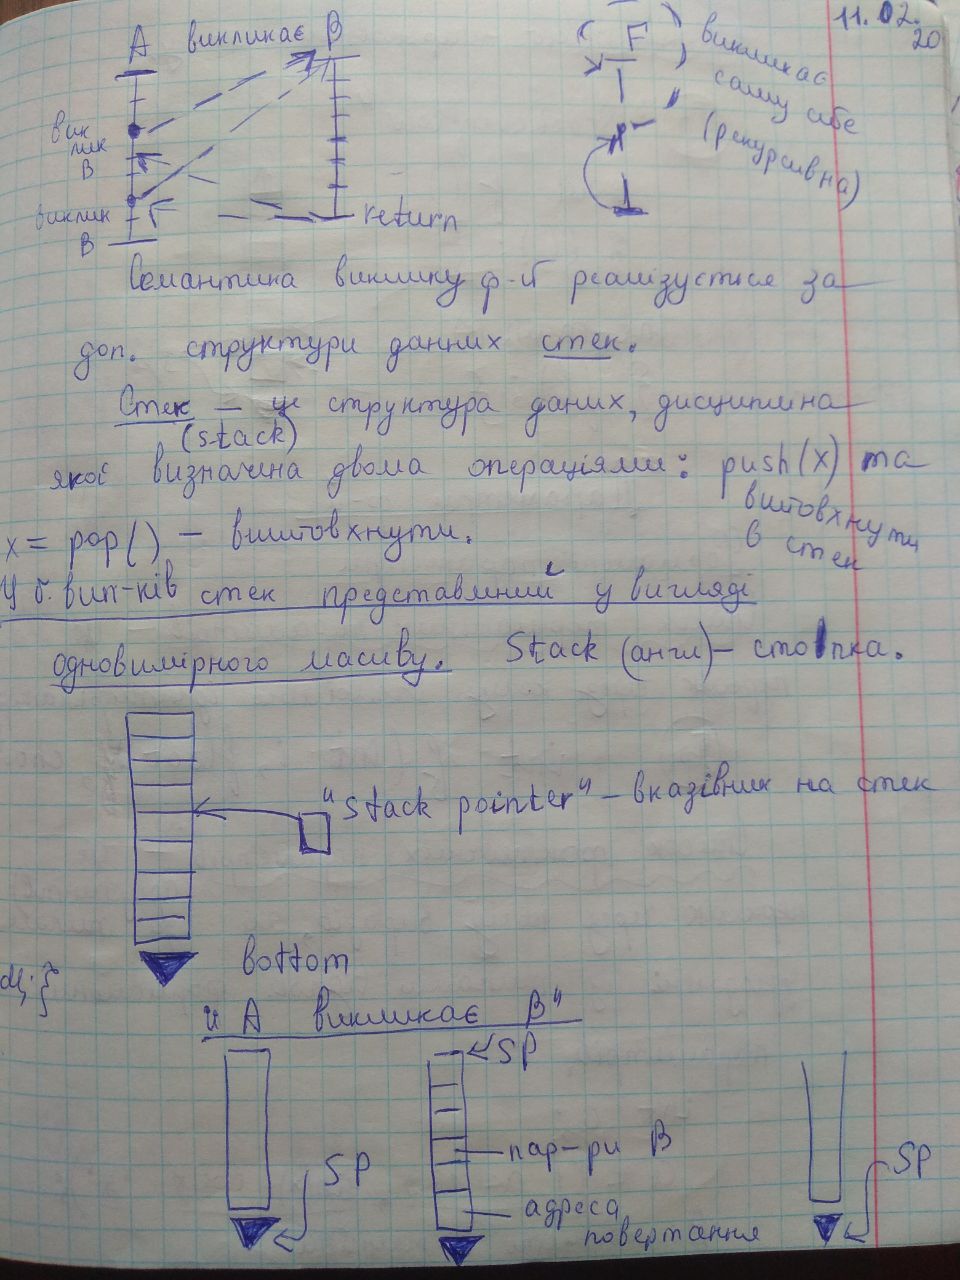 11.02.20
A викликає B
F
викликає
саму себе
(рекурсивна)
виклик
B
виклик
B
return
Семантика виклику ф-й реалізується за
доп. структури данних стек.
Стек – це структура даних, дисципліна
(stack)
якої визначина двома операціями: push(x) та
виштовхнути
в стек
x = pop() – виштовхнути.
У б. вип-ків стек представлений у вигляді
одновимірного масиву. Stack (англ) – стопка.
"Stack pointer" – вказівник на стек
bottom
"A викликає B"
SP
пар-ри B
адреса
повертання
SP
SP